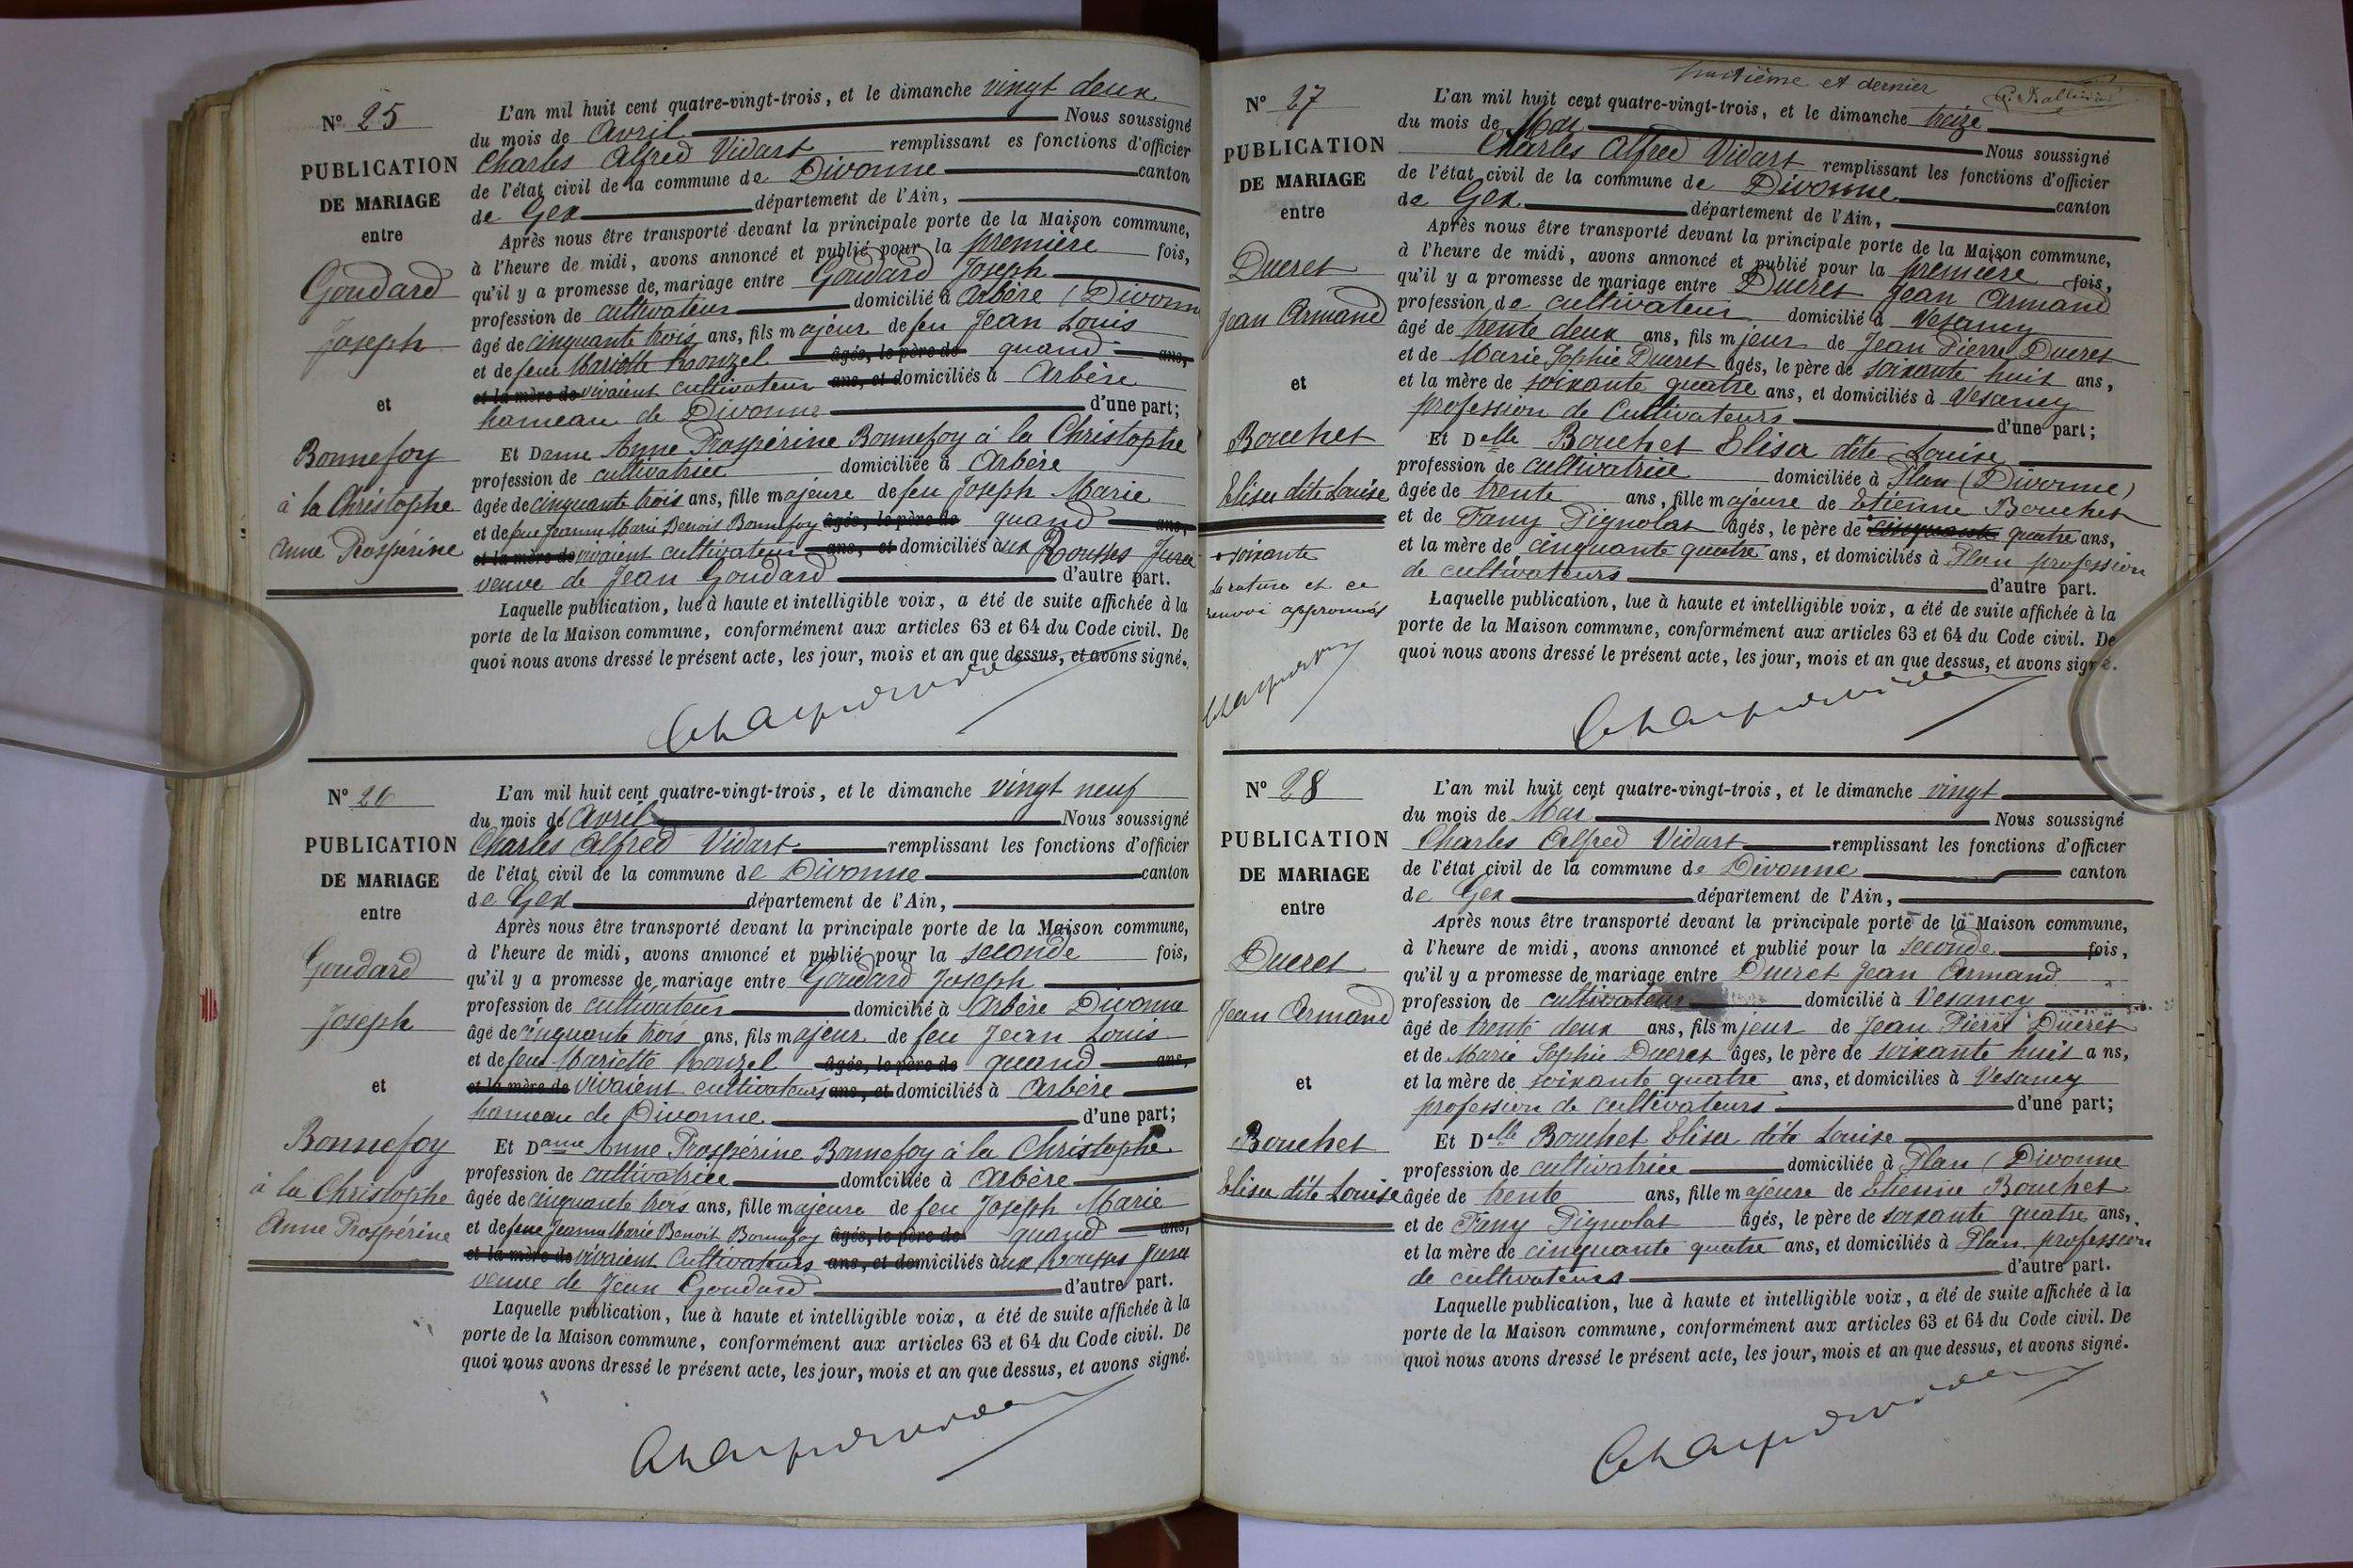 N° 25
PUBLICATION
DE MARIAGE
entre
Goudard
Joseph
et
Bonnefoy
à la Christophe
Anne Prospérine
L'an mil huit cent quatre-vingt-trois, et le dimanche vingt deux
du mois de Avril Nous soussigné
Charles Alfred Vidart remplissant es fonctions d'officier
de l'état civil de la commune de Divonne canton
de Gex département de l'Ain,
Après nous être transporté devant la principale porte de la Maison commune,
à l'heure de midi, avons annoncé et publié pour la première fois,
qu'il y a promesse de mariage entre Goudard Joseph
profession de cultivateur domicilié à Arbère (Divonn
âgé de cinquante trois ans, fils majeur de feu Jean Louis
et de feue Mariette Rouzel âgés, le père de quand ans,
et la mère de vivaient cultivateur ans, et domiciliés à Arbère
hameau de Divonne d'une part;
Et Dame Anne Prospérine Bonnefoy à la Christophe
profession de cultivatrice domiciliée à Arbère
âgée de cinquante trois ans, fille majeure de feu Joseph Marie
et de feue Jeanne Marie Benoit Bonnefoy âgés, le père de quand ans,
et la mère de vivaient cultivateur ans, et domiciliés aux Rousses Jura
veuve de Jean Goudard d'autre part.
Laquelle publication, lue à haute et intelligible voix, a été de suite affichée à la
porte de la Maison commune, conformément aux articles 63 et 64 du Code civil. De
quoi nous avons dressé le présent acte, les jour, mois et an que dessus, et avons signé.
N° 26
PUBLICATION
DE MARIAGE
entre
Goudard
Joseph
et
Bonnefoy
à la Christophe
Anne Prospérine
L'an mil huit cent quatre-vingt-trois, et le dimanche vingt neuf
du mois de Avril Nous soussigné
Charles Alfred Vidart remplissant les fonctions d'officier
de l'état civil de la commune de Divonne canton
de Gex département de l'Ain,
Après nous être transporté devant la principale porte de la Maison commune,
à l'heure de midi, avons annoncé et publié pour la seconde fois,
qu'il y a promesse de mariage entre Goudard Joseph
profession de cultivateur domicilié à Arbère Divonne
âgé de cinquante trois ans, fils majeur de feu Jean Louis
et de feue Mariette Rouzel âgés, le père de quand ans,
et la mère de vivaient cultivateurs ans, et domiciliés à Arbère
hameau de Divonne d'une part;
Et Dame Anne Prospérine Bonnefoy à la Christophe
profession de cultivatrice domiciliée à Arbère
âgée de cinquante trois ans, fille majeure de feu Joseph Marie
et de feue Jeanne Marie Benoit Bonnefoy âgés, le père de quand ans,
et la mère de vivaient Cultivateurs ans, et domiciliés aux Rousses Jura
veuve de Jean Goudard d'autre part.
Laquelle publication, lue à haute et intelligible voix, a été de suite affichée à la
porte de la Maison commune, conformément aux articles 63 et 64 du Code civil. De
quoi nous avons dressé le présent acte, les jour, mois et an que dessus, et avons signé.
huitième et dernier
N° 27
PUBLICATION
DE MARIAGE
entre
Ducret
Jean Armand
et
Bouchet
Elisa dite Louise
soixante
la rature et ce
renvoi approuvés
L'an mil huit cent quatre-vingt-trois, et le dimanche treize
du mois de Mai Nous soussigné
Charles Alfred Vidart remplissant les fonctions d'officier
de l'état civil de la commune de Divonne canton
de Gex département de l'Ain,
Après nous être transporté devant la principale porte de la Maison commune,
à l'heure de midi, avons annoncé et publié pour la première fois,
qu'il y a promesse de mariage entre Ducret Jean Armand
profession de cultivateur domicilié à Vesancy
âgé de trente deux ans, fils mjeur de Jean Pierre Ducret
et de Marie Sophie Ducret âgés, le père de soixante huit ans,
et la mère de soixante quatre ans, et domiciliés à Vesancy
profession de Cultivateurs d'une part;
Et Delle Bouchet Elisa dite Louise
profession de cultivatrice domiciliée à Plan (Divonne)
âgée de trente ans, fille majeure de Etienne Bouchet
et de Fany Pignolat âgés, le père de cinquante quatre ans,
et la mère de cinquante quatre ans, et domiciliés à Plan profession
de cultivateurs d'autre part.
Laquelle publication, lue à haute et intelligible voix, a été de suite affichée à la
porte de la Maison commune, conformément aux articles 63 et 64 du Code civil. De
quoi nous avons dressé le présent acte, les jour, mois et an que dessus, et avons signé.
N° 28
PUBLICATION
DE MARIAGE
entre
Ducret
Jean Armand
et
Bouchet
Elisa dite Louise
L'an mil huit cent quatre-vingt-trois, et le dimanche vingt
du mois de Mai Nous soussigné
Charles Alfred Vidart remplissant les fonctions d'officier
de l'état civil de la commune de Divonne canton
de Gex département de l'Ain,
Après nous être transporté devant la principale porte de la Maison commune,
à l'heure de midi, avons annoncé et publié pour la seconde fois,
qu'il y a promesse de mariage entre Ducret Jean Armand
profession de cultivateur domicilié à Vesancy
âgé de trente deux ans, fils mjeur de Jean Pierre Ducret
et de Marie Sophie Ducret âges, le père de soixante huit ans,
et la mère de soixante quatre ans, et domicilies à Vesancy
profession de cultivateurs d'une part;
Et Delle Bouchet Elisa dite Louise
profession de cultivatrice domiciliée à Plan (Divonne
âgée de trente ans, fille majeure de Etienne Bouchet
et de Fany Pignolat âgés, le père de soixante quatre ans,
et la mère de cinquante quatre ans, et domiciliés à Plan profession
de cultivateurs d'autre part.
Laquelle publication, lue à haute et intelligible voix, a été de suite affichée à la
porte de la Maison commune, conformément aux articles 63 et 64 du Code civil. De
quoi nous avons dressé le présent acte, les jour, mois et an que dessus, et avons signé.